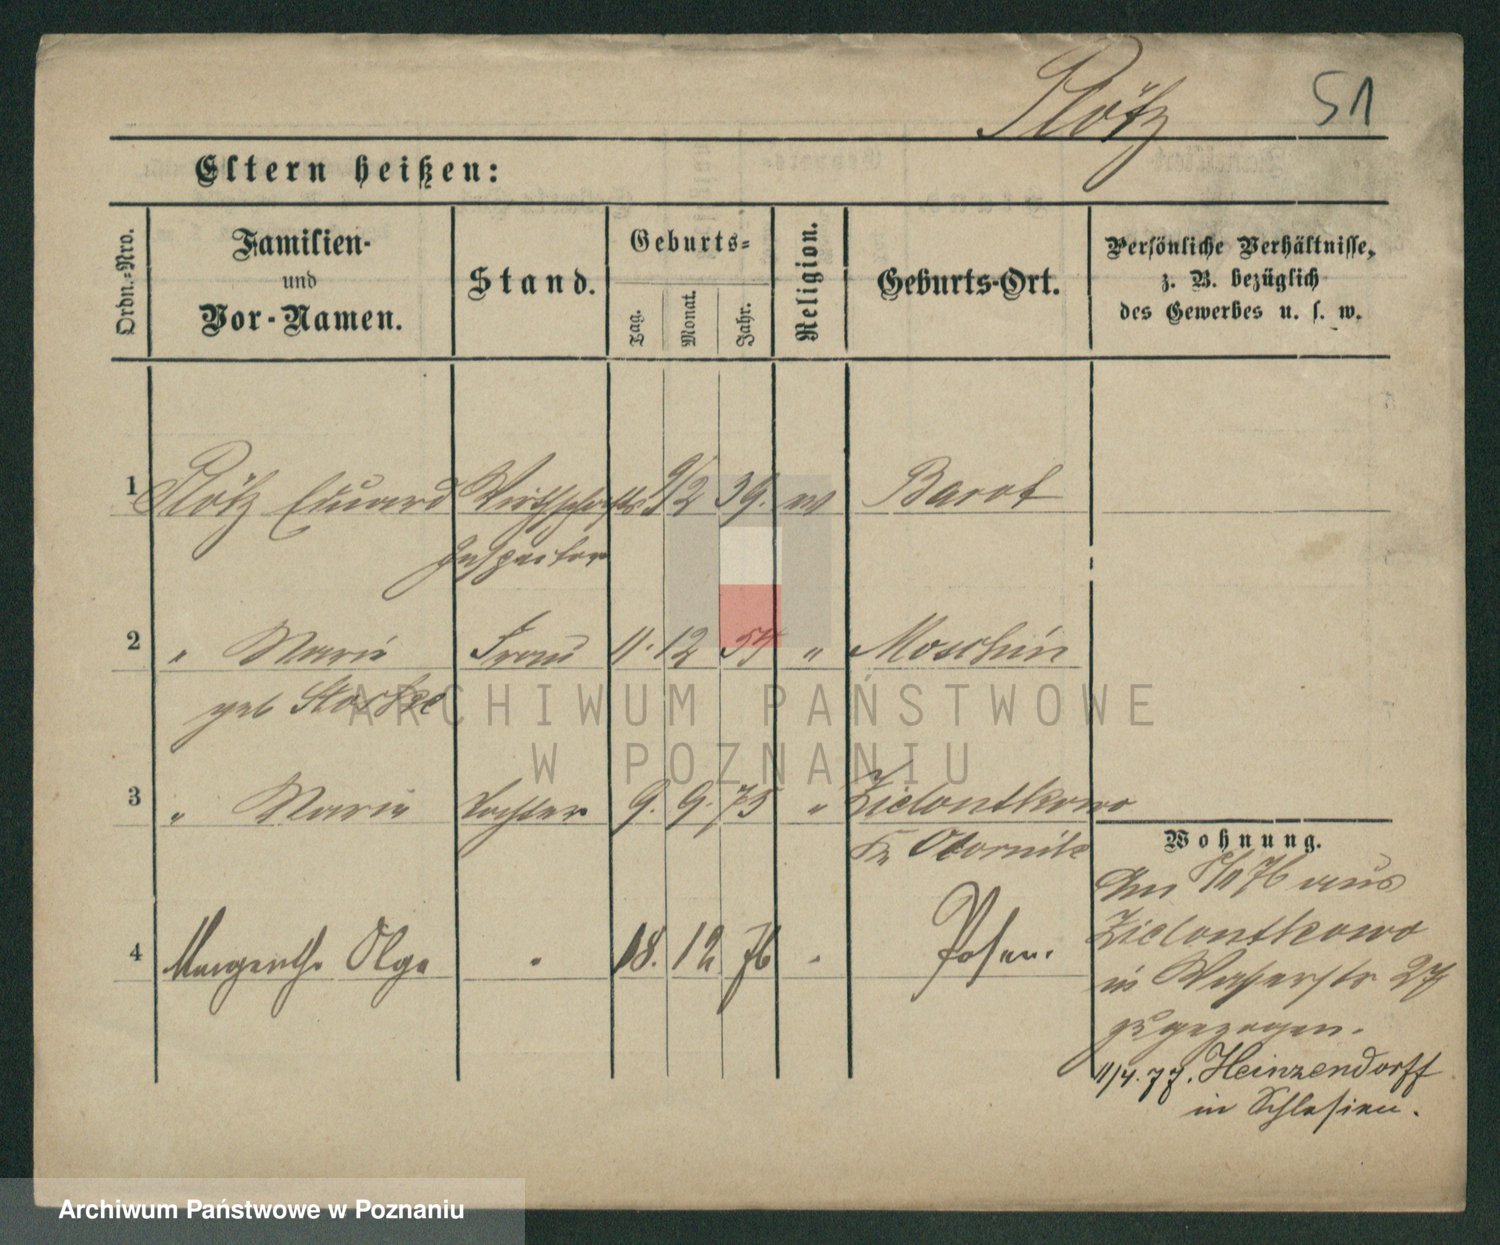 Plötz 51
Eltern heißen:
Ordn.-Nro.
Familien-
und
Vor-Namen.
Stand.
Geburts-
Tag.
Monat.
Jahr.
Religion.
Geburts-Ort.
Persönliche Verhältnisse,
z. B. bezüglich
des Gewerbes u. s. w.
1 Plötz Eduard Wirthschafts 9/2 39. ev Barot
Inspector
2 " Marie Frau 11. 12 54 " Moschin
geb
3 " Marie Tochter 9. 9. 75 " Zielontkowo
Kr Obornik
4 Margarethe Olga " 18. 12 76 " Posen.
Wohnung.
Am 5/11 76 aus
Zielontkowo
in Wasserstr 27
zugezogen.
11/4. 77. Heinzendorff
in Schlesien.
ARCHIWUM PAŃSTWOWE
W POZNANIU
Archiwum Państwowe w Poznaniu